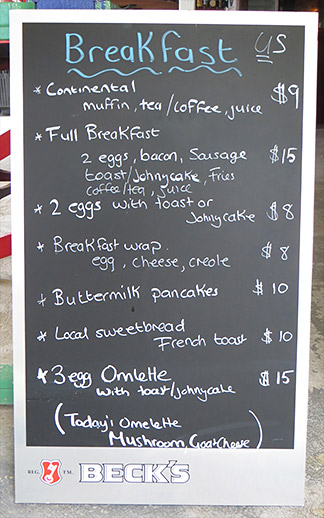 Breakfast US
* Continental
muffin, tea/coffee, juice $9
* Full Breakfast
2 eggs, bacon, Sausage $15
toast/Johnycake, Fries
coffee/tea, juice
* 2 eggs with toast or
Johnycake $8
* Breakfast wrap.
egg, cheese, creole $8
* Buttermilk pancakes $10
* Local sweetbread
French toast $10
* 3 egg Omlette $15
with toast/Johnycake
(Today's Omelette
Mushroom, Goat Cheese)
REG. T.M. BECK'S